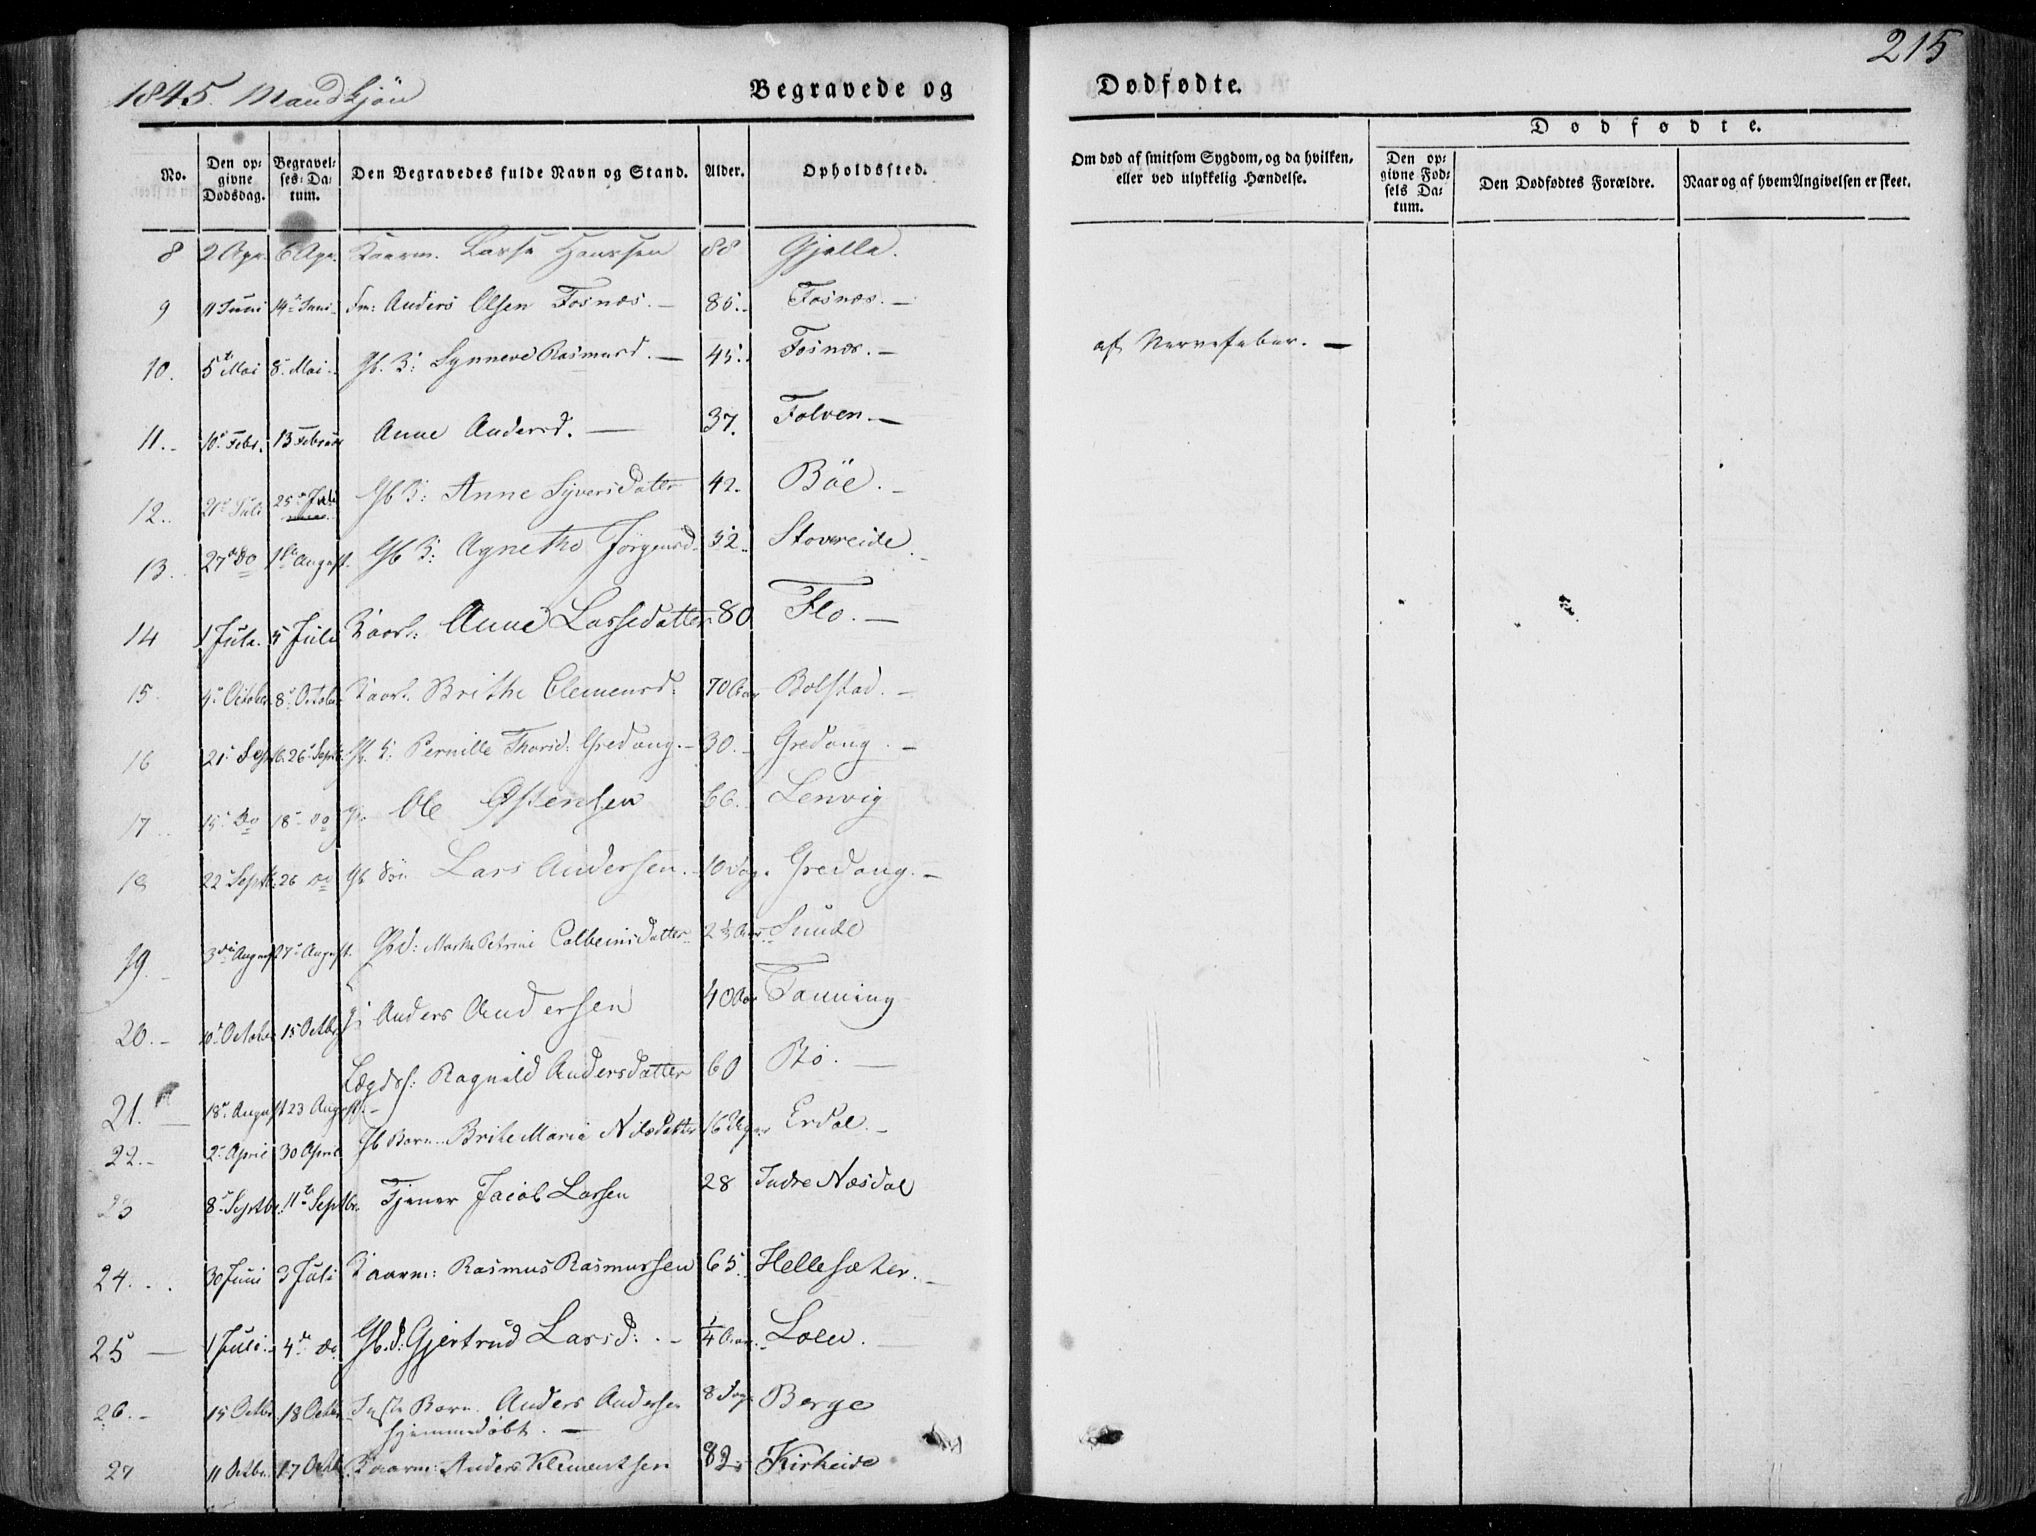 215
1845. Mandkjön
Begravede og Dødfødte.
No.
Den opgivne Dødsdag.
Begravelses-Datum.
Den Begravedes fulde Navn og Stand.
Alder.
Opholdssted.
Om død af smitsom Sygdom, og da hvilken, eller ved ulykkelig Hændelse.
Dødfødte.
Den opgivne Fødsels Datum.
Den Dødfødtes Forældre.
Naar og af hvem Angivelsen er skeet.
8 2 Apr. 6 Apr. Kaarm. Lasse Hanssen 88 Gjelle.
9 11 Juni 14de Juni Fm: Anders Olsen Fosnæs. — 85. Fosnæs. —
10. 5te Mai 8. Mai. Gb. K: Synneve Rasmusd. — 45. Fosnæs. — af Nervefeber. —
11. 10de Febr. 13 Februar Anne Andersd. — 37. Folven. —
12. 21de Juli 25de Juli Gb K: Anne Syversdatter 42. Böe. —
13. 27de Do 1ste August. Gb K: Agnethe Jörgensd. 32. Stovreide. —
14 1 Jula. 5 Juli Kaark: Anne Lassedatter 80 Flo. —
15. 4de October 8de October Kaark. Brithe Clemensd. 70 Aar Bolstad. —
16 21de Septb. 26de Septb. Gb. K: Pernille Thorsd: Gredung. — 30. — Gredung. —
17. 15de Do 18de Do Ole Østensen 66. Lenvig
18 22de Septb. 26 Do Gb Sön Lars Andersen. 10 Dag. Gredung. —
19. 3die August 27de August. Gbd: Marthe Petrine Colbeinsdatter 2 1/2 Aar. Sunde
20. — 10de October 15 Octbr Anders Andersen 40 Aar Tanning
21. — 18de August 23 August. Lægdsl: Ragnild Andersdatter 60 Bö. —
22. — 2de April 30 April Gb Barn. Brite Maria Nilsdatter 16 Uger Erdal. —
23 8de Septbr. 11te Septbr. Tjener Jacob Larsen 28 Indre Næsdal
24. 30 Juni 3 Juli Kaarm: Rasmus Rasmussen 65. Hellesæter. —
25 — 1 Juli. 4de do Gb. d: Gjertrud Larsd: — 1/4 Aar. Loen. —
26. — 15 Octbr 18 Octbr Inste Barn. Anders Andersen 8 Dage Berge
hjemmedøbt. —
27 11 Octbr. 17 Octbr. Kaarm: Anders Klementsen 82. Kirkeide